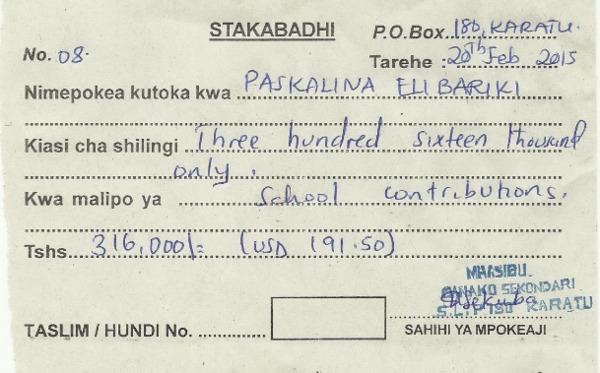 STAKABADHI
P.O.Box 180, KARATU.
No. 08.
Tarehe: 20th Feb 2015
Nimepokea kutoka kwa PASKALINA ELIBARIKI
Kiasi cha shilingi Three hundred sixteen thousand
only.
Kwa malipo ya School contributions.
Tshs 316,000/= (USD 191.50)
MHASIBU
SEKONDARI
S.L.P 180 KARATU
TASLIM / HUNDI No.
SAHIHI YA MPOKEAJI